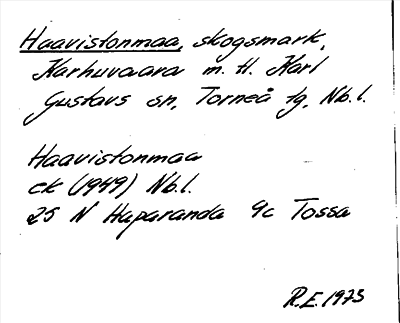 Haavistonmaa, skogsmark,
Karhuvaara m. fl. Karl
Gustavs sn, Torneå tg, Nb.l.
Haavistonmaa
ek (1949) Nb.l.
25 N Haparanda 9c Tossa
R.E. 1973